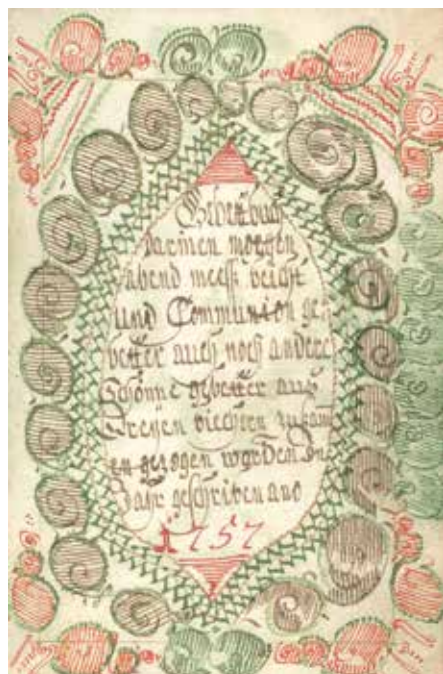 Gebettbuch
darinen morgen
abend mess beicht
und Communion ge-
better auch noch andere
schönne gebetter aus
Dreyen biechren zu sam
en gezogen worden Ins
Jahr geschriben ano
1757